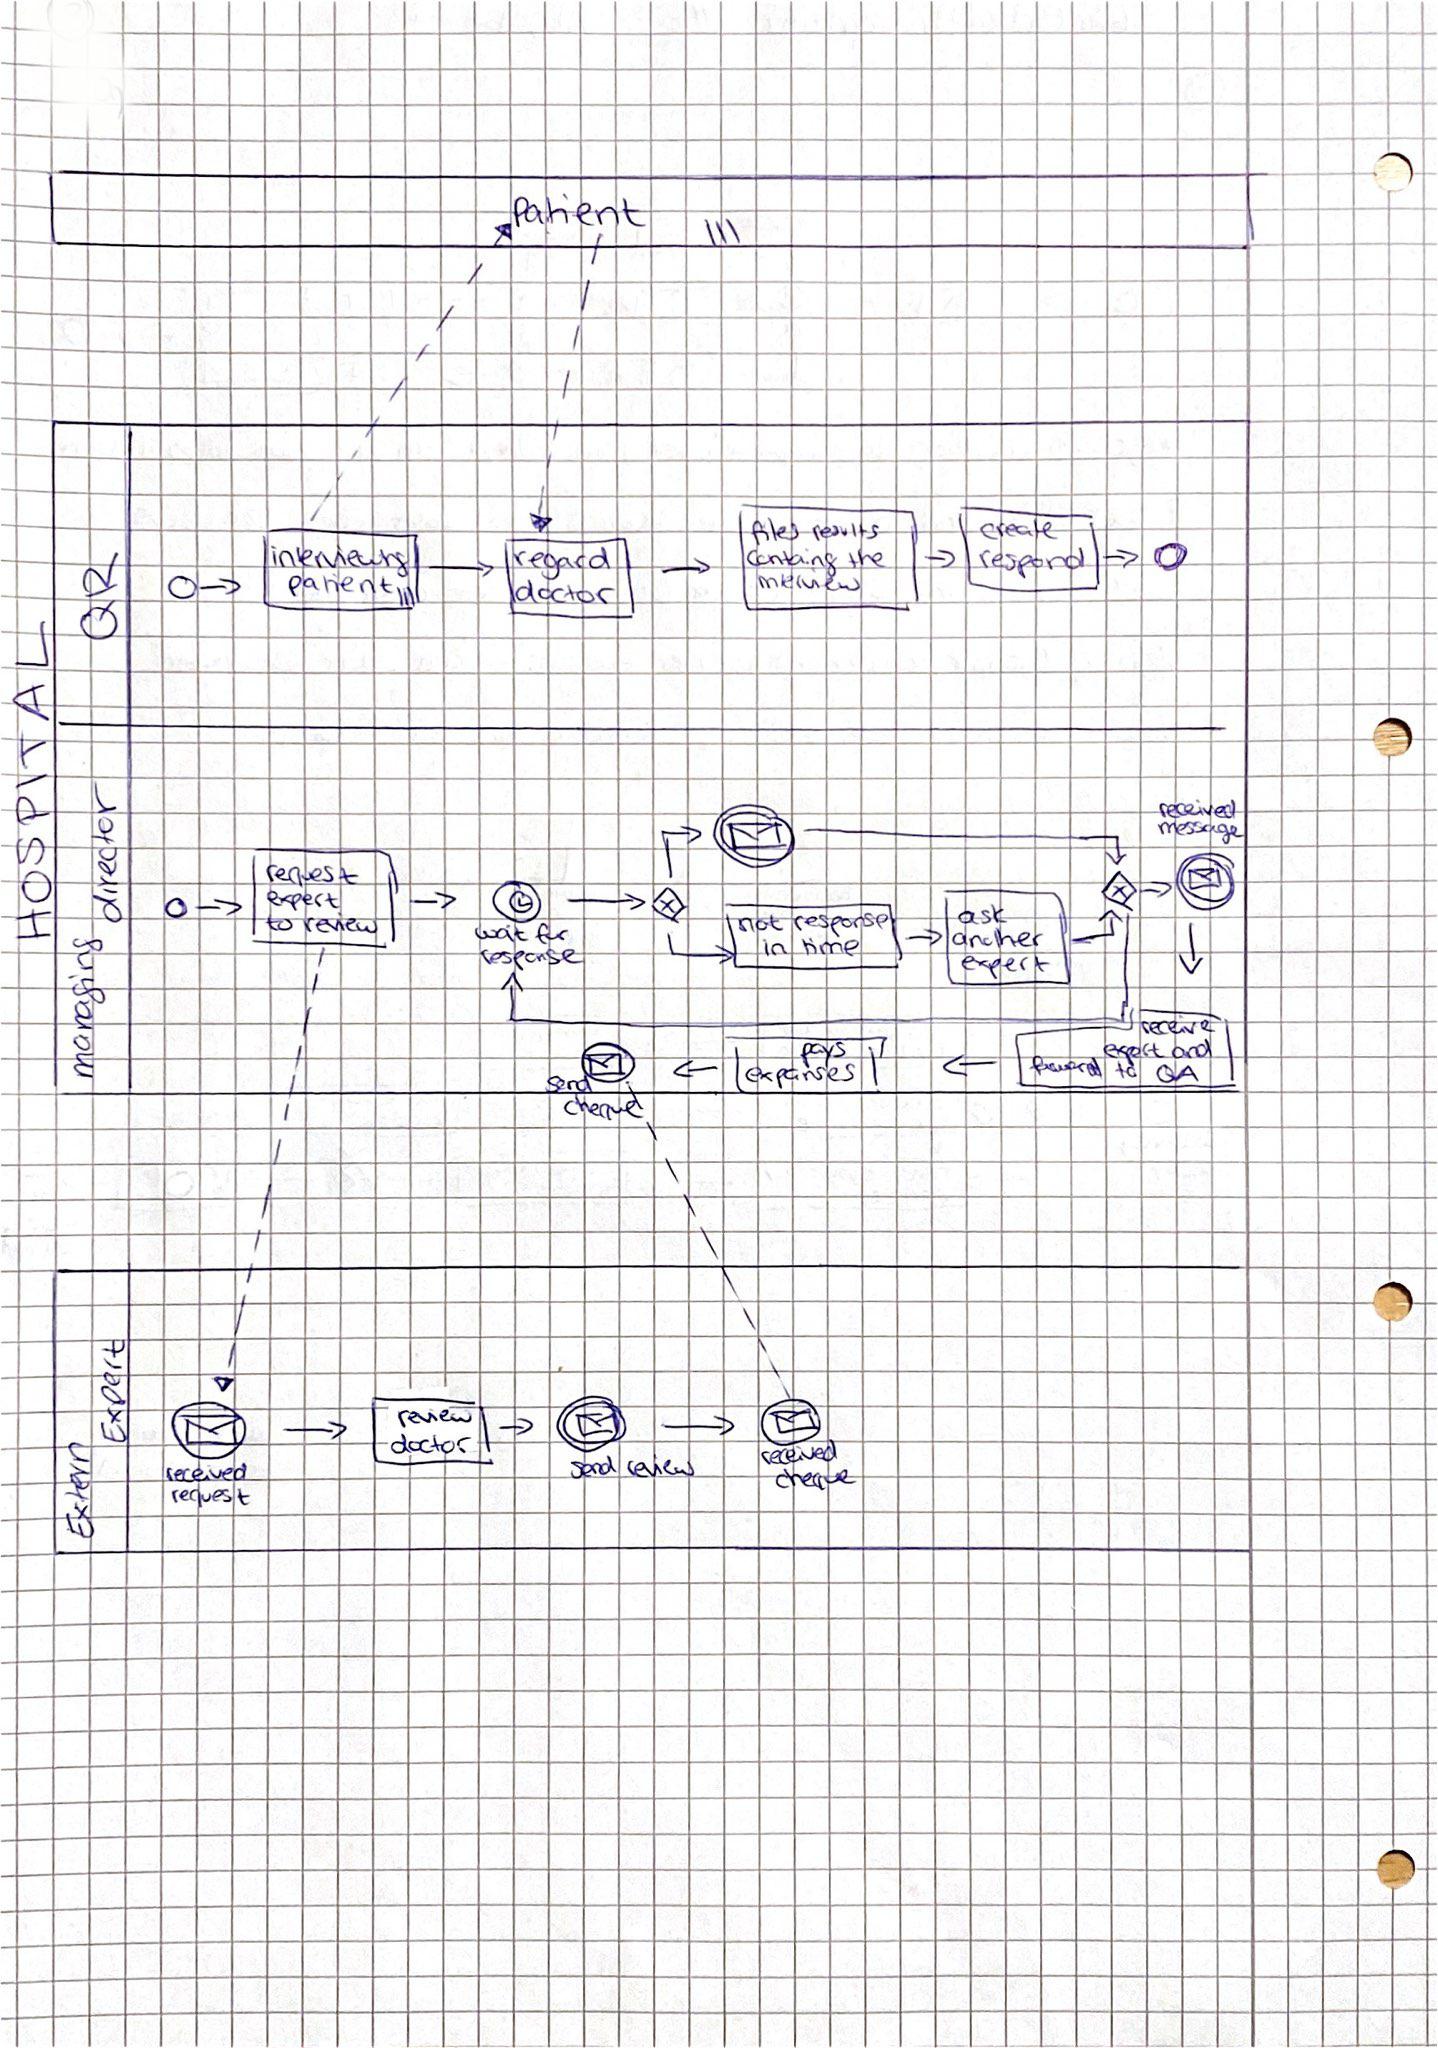 Patient
HOSPITAL
QR
interviews
patient
regard
doctor
files results
containg the
interview
create
respond
managing
director
request
expert
to review
wait for
response
not response
in time
ask
another
expert
received
message
receive
expert and
forward to QA
pays
expanses
send
cheque
Extern
Expert
received
request
review
doctor
send review
received
cheque